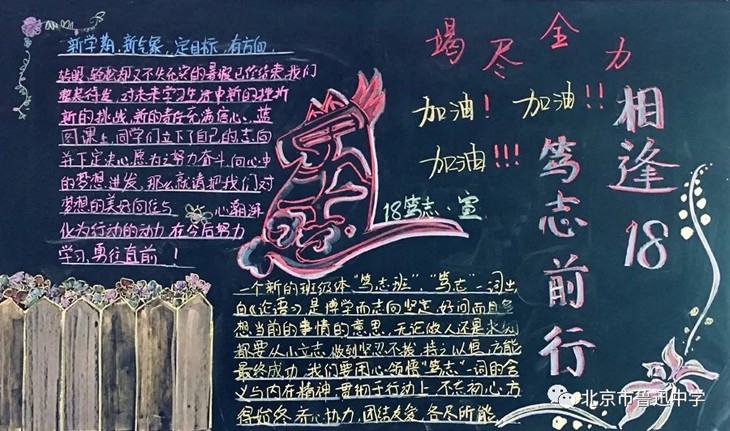 新学期、新气象、定目标、有方向
转眼，轻松却又不失充实的暑假已经结束，我们
整装待发，对未来学习生活中新的挫折
新的挑战，新的责任充满信心。蓝
图课上，同学们立下了自己的志向
并下定决心，愿为之努力奋斗，向心中
的梦想进发。那么就请把我们对
梦想的美好向往与心潮澎湃
化为行动的动力，在今后努力
学习，勇往直前！
竭尽全力
加油！加油！！
加油！！！
相逢18
笃志前行
18笃志·宣
一个新的班级体“笃志班”，“笃志”一词出
自《论语》，是博学而志向坚定，好问而且多
想当前的事情的意思。无论做人还是求知
都要从小立志，做到坚忍不拔，持之以恒，方能
最终成功。我们要用心领悟“笃志”一词的含
义与内在精神，贯彻于行动上，不忘初心，方
得始终，齐心协力，团结友爱，各尽所能
北京市鲁迅中学